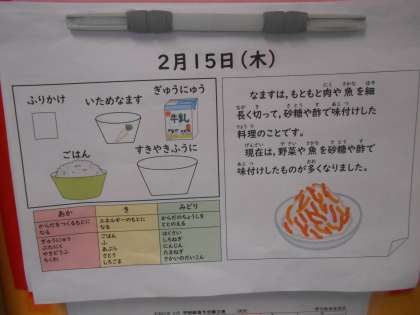 2月15日(木)
ふりかけ
いためなます
ぎゅうにゅう
牛乳
ごはん
すきやきふうに
なますは、もともと肉や魚を細
長く切って、砂糖や酢で味付けした
料理のことです。
現在は、野菜や魚を砂糖や酢で
味付けしたものが多くなりました。
あか
き
みどり
からだをつくるもとに
なる
エネルギーのもとに
なる
からだのちょうしを
ととのえる
ぎゅうにゅう
ぶたにく
やきどうふ
ちくわ
ごはん
ふ
あぶら
さとう
しろごま
はくさい
しろねぎ
にんじん
たまねぎ
さかいのだいこん